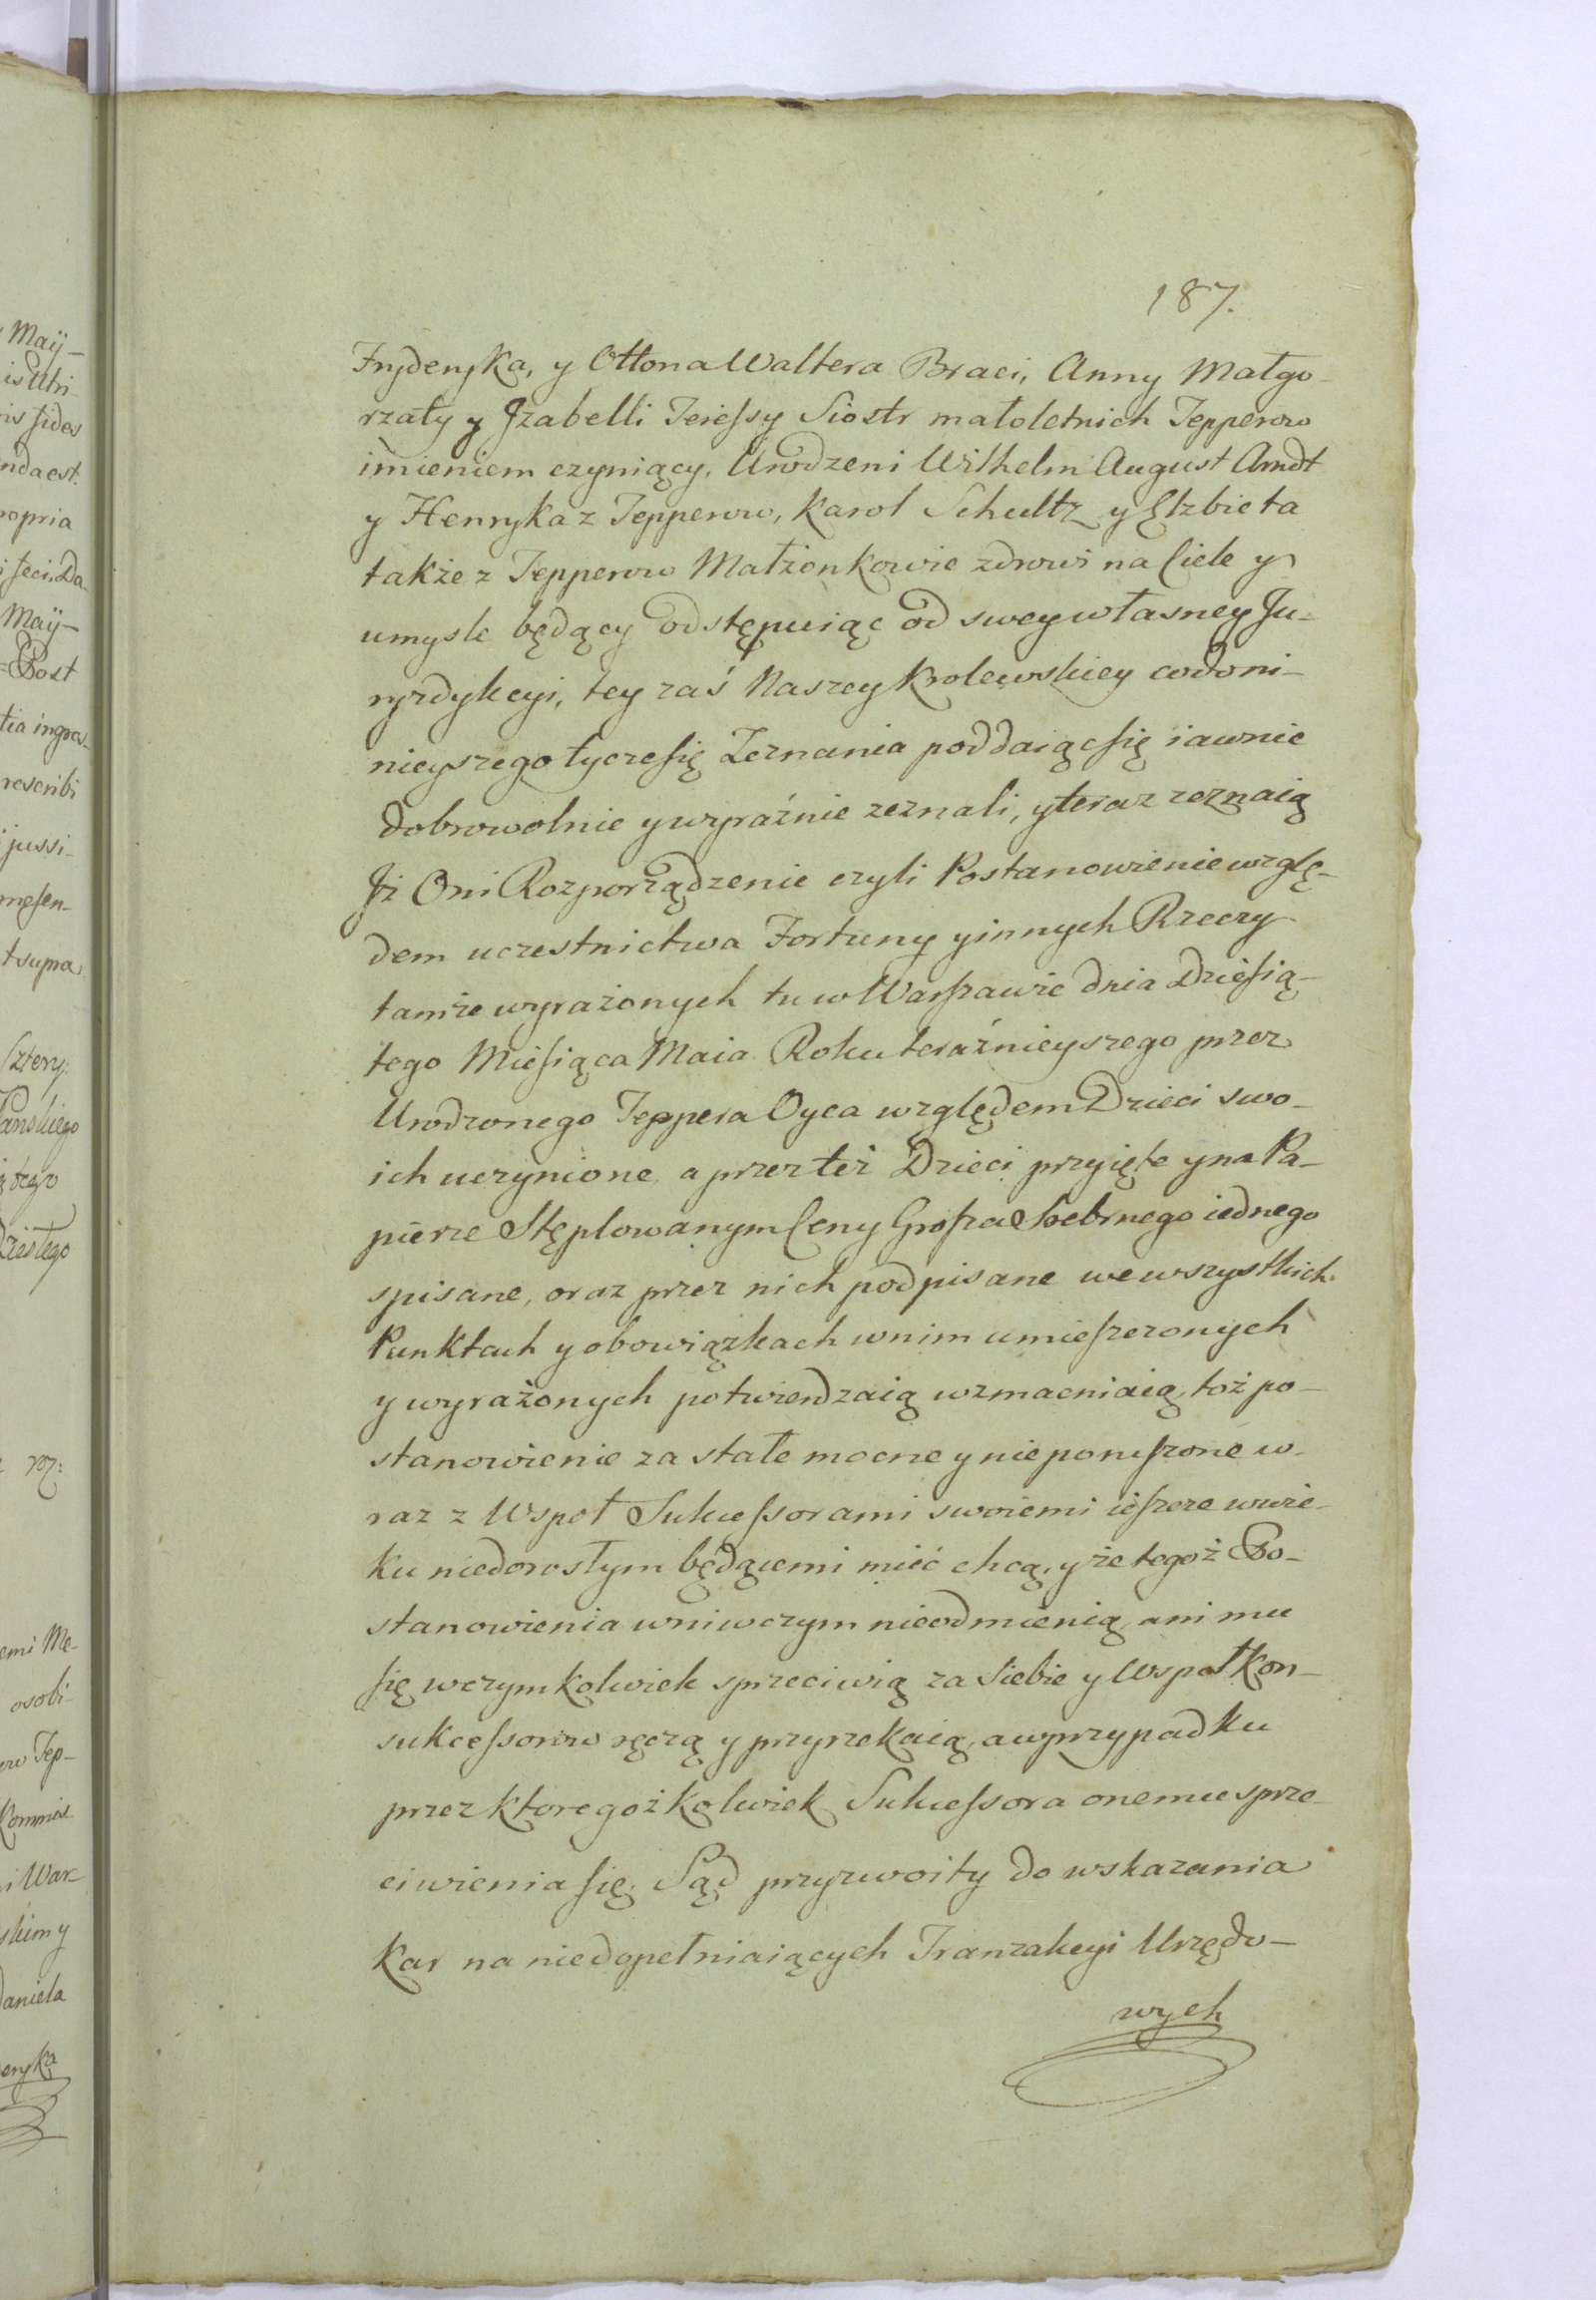 187.
Fryderyka, y Ottona Waltera Braci, Anny Małgo-
rzaty y Jzabelli Teressy Siostr małoletnich Tepperow
imieniem czyniący, Urodzeni Wilhelm August Arndt
y Henryka z Tepperow, Karol Schultz y Elzbieta
także z Tepperow Małżonkowie zdrowi na Ciele y
umysle będący odstępuiąc od swey własney Ju-
ryzdykcyi, tey zaś Naszey Krolewskiey codoni-
nieyszego tycze się Zeznania poddaiąc się iawnie
dobrowolnie y wyraźnie zeznali, y teraz zeznaią
Jż Oni Rozporządzenie czyli Postanowienie wzglę-
dem uczestnictwa Fortuny y innych Rzeczy
tamże wyrażonych tu w Warszawie dnia Dziesią-
tego Miesiąca Maia Roku teraźnieyszego przez
Urodzonego Teppera Oyca względem Dzieci swo-
ich uczynione, a przez też Dzieci przyięte y na Pa-
pierze Stęplowanym Ceny Grosza Srebrnego iednego
spisane, oraz przez nich podpisane we wszystkich
Punktach y obowiązkach w nim umieszczonych
y wyrażonych potwierdzaią wzmacniaią, toż po-
stanowienie za stałe mocne y nieporuszone w-
raz z Wspoł Sukcessorami swoiemi ieszcze w wie-
ku niedorosłym będącemi mieć chcą, y że tegoż Po-
stanowienia w niwczym nieodmienią, ani mu
się w czymkolwiek sprzeciwią za Siebie y Wspoł Kon-
sukcessorow ręczą y przyrzekaią, a w przypadku
przez ktoregożkolwiek Sukcessora onemu sprze-
ciwienia się, Sąd przyzwoity do wskazania
kar na niedopełniaiących Tranzakcyi Urzędo-
wych